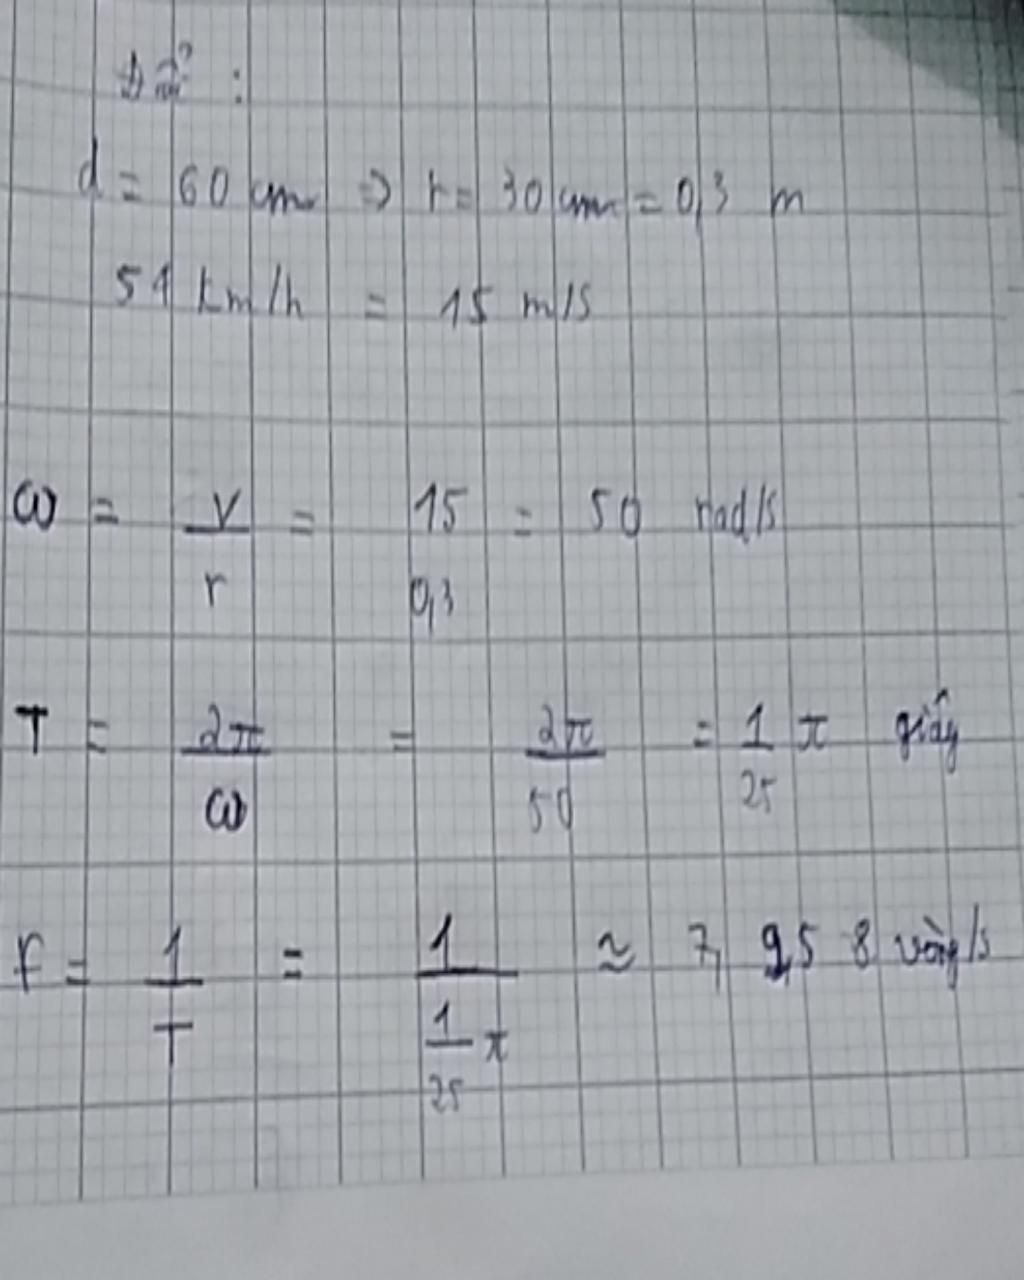 Đổi :
d = 60 cm ⇒ r = 30 cm = 0,3 m
54 km/h = 15 m/s
ω = v/r = 15/0,3 = 50 rad/s
T = 2π/ω = 2π/50 = 1/25 π giây
f = 1/T = 1/(1/25 π) ≈ 7,958 vòng/s